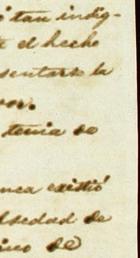 tan indig-
el hecho
sentarse la
tenia de
nca existió
lsedad de
de